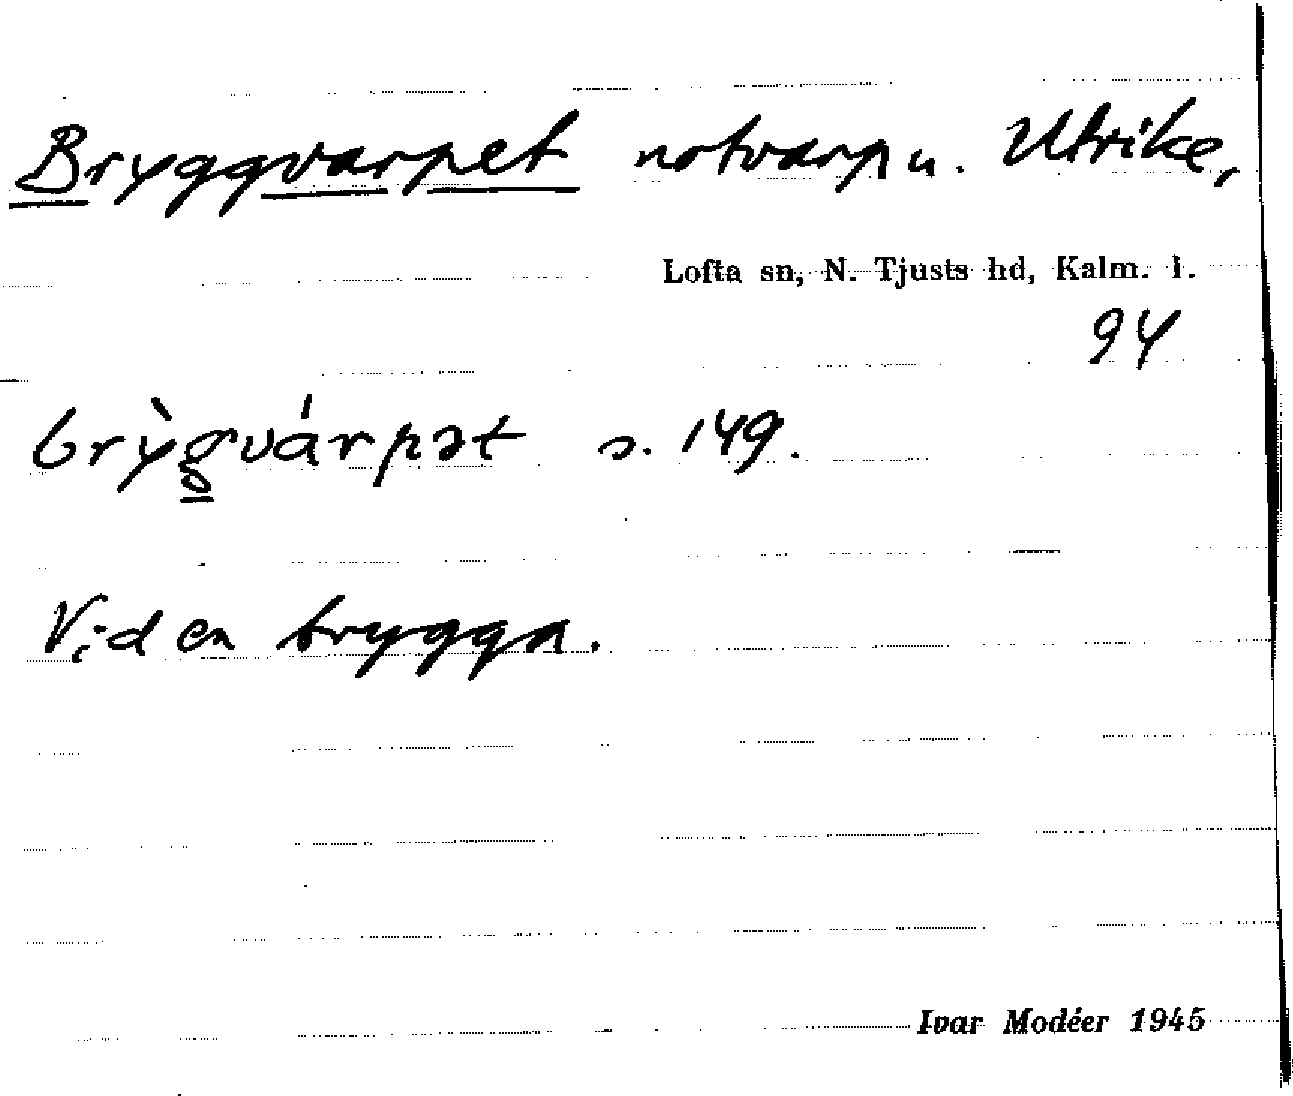 Bryggvarpet notvarp u. Utrike,
Lofta sn, N. Tjusts hd, Kalm. l.
94
brỳgvárpət s. 149.
Vid en brygga.
Ivar Modéer 1945